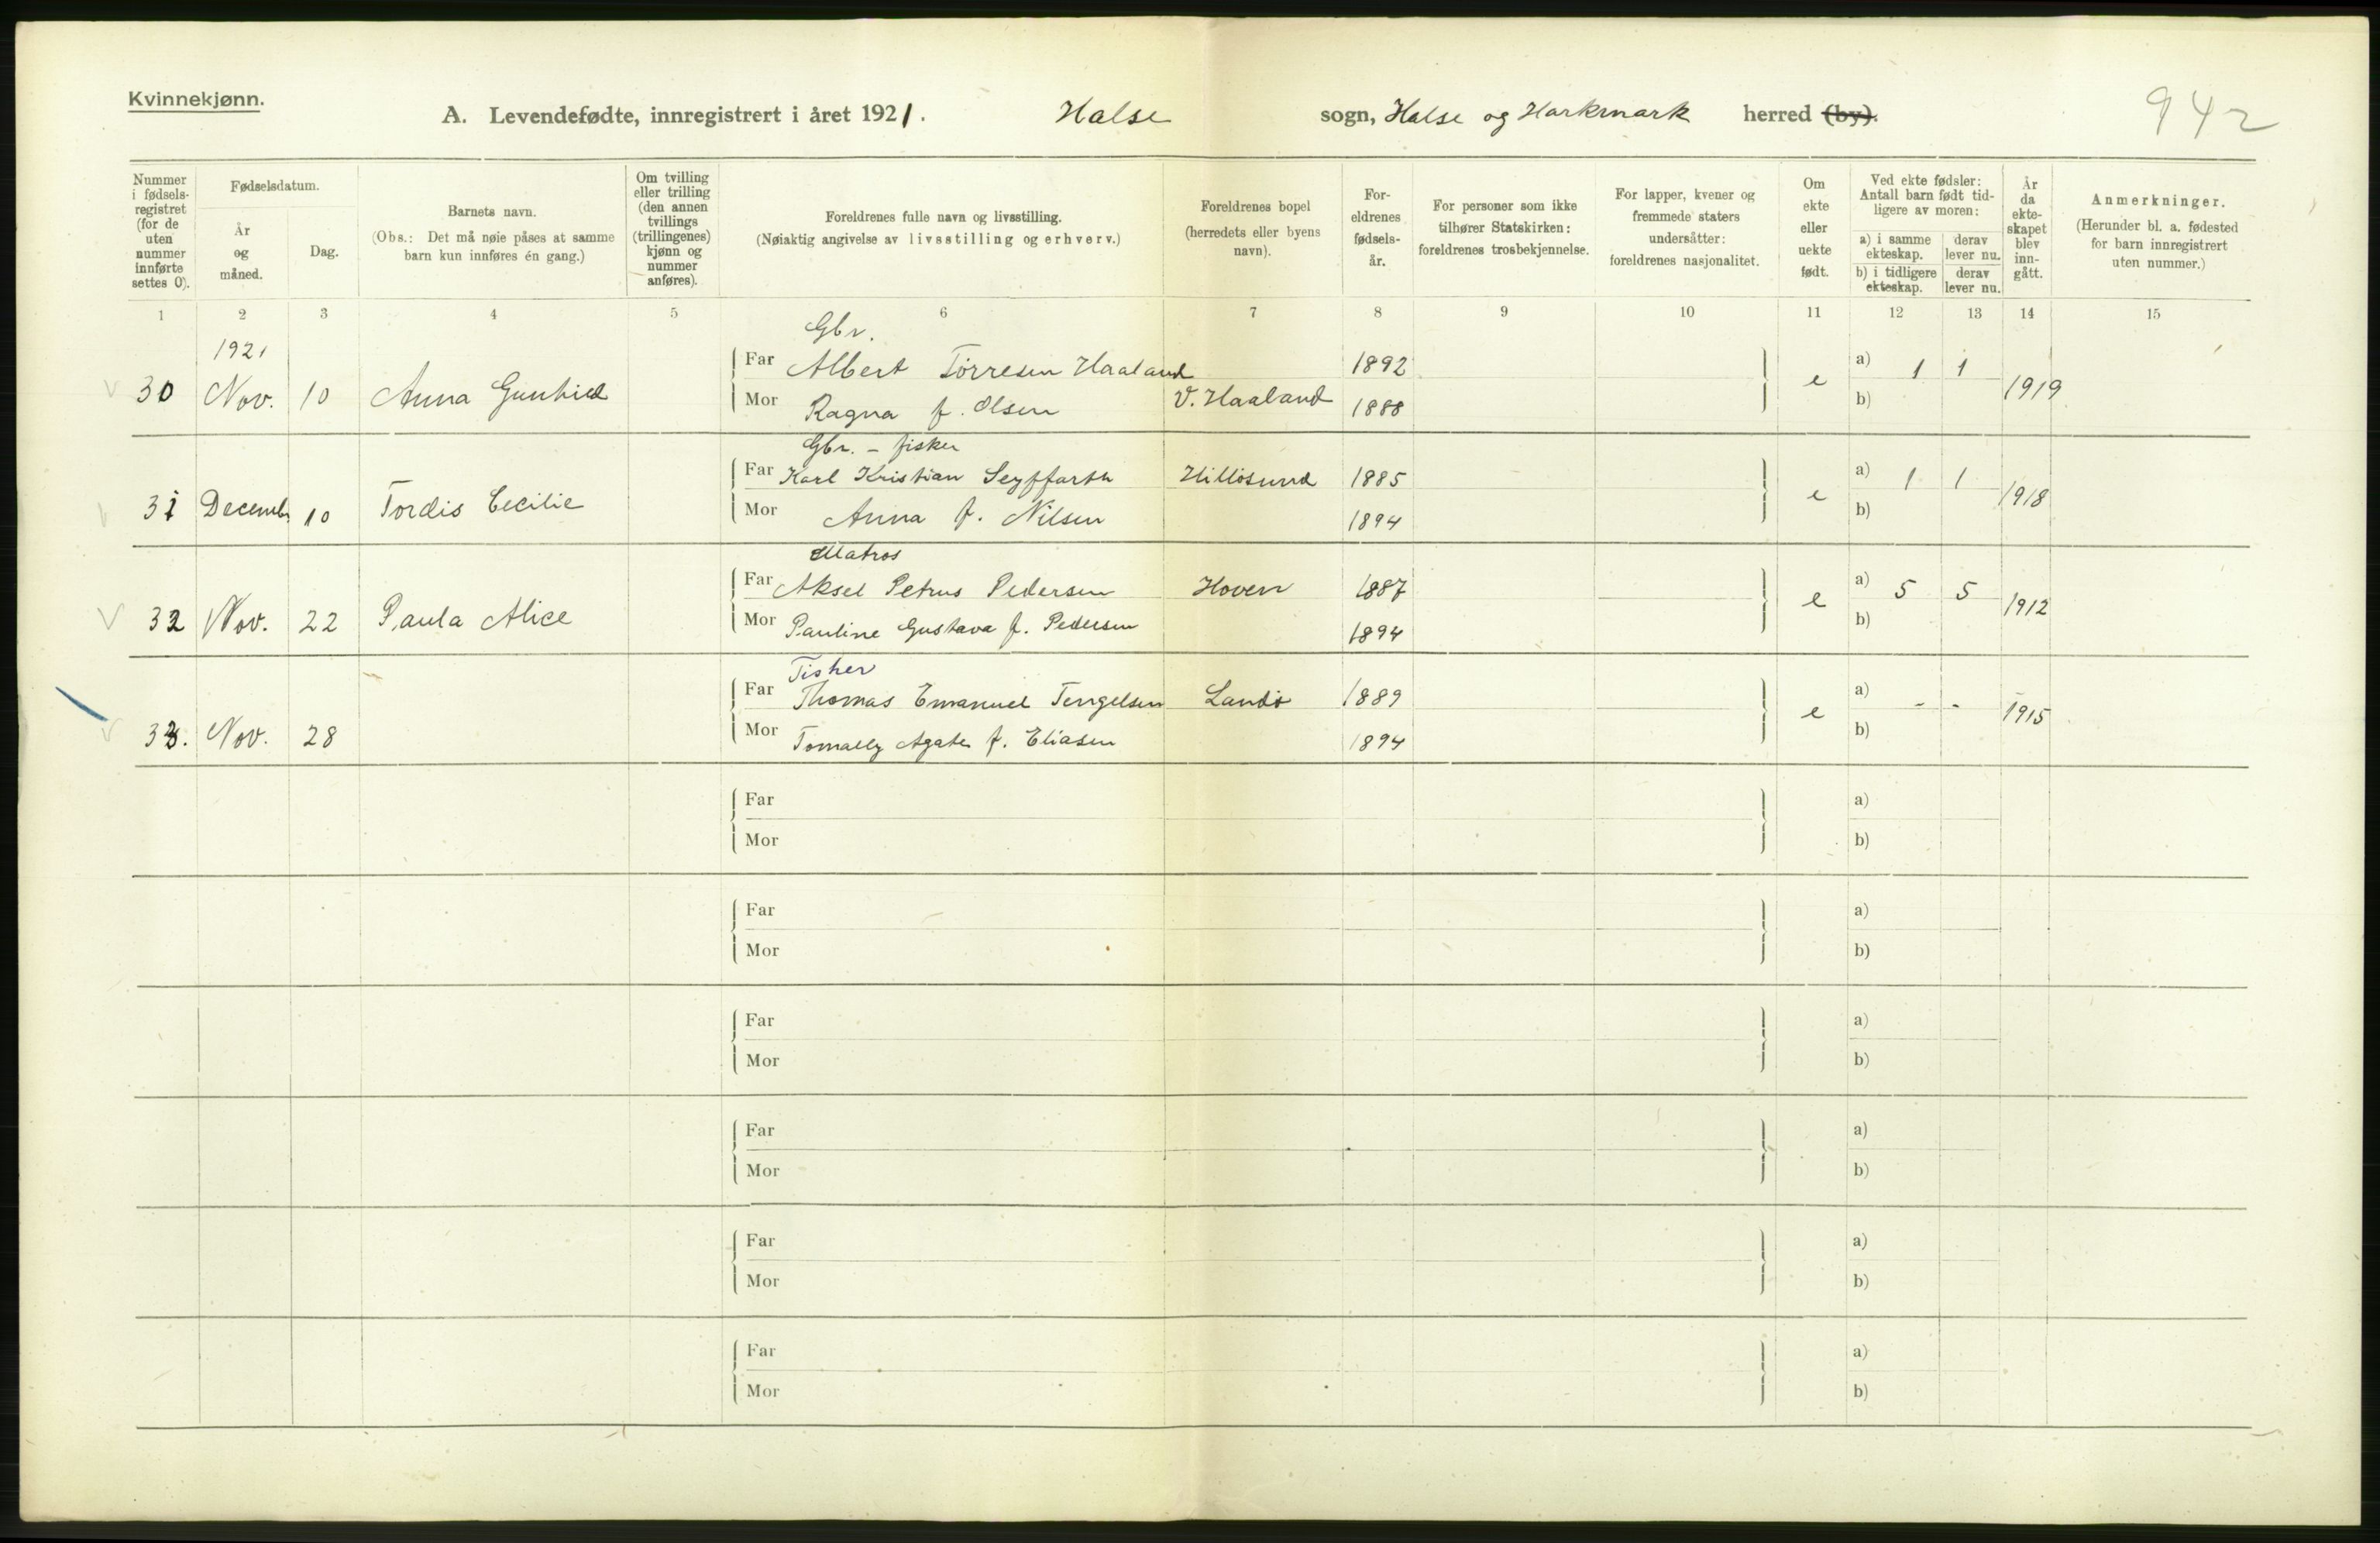 Kvinnekjønn.
A. Levendefødte, innregistrert i året 1921. Halse sogn, Halse og Harkmark herred (by).
942
Nummer i fødsels-registret (for de uten nummer innførte settes 0).
Fødselsdatum.
År og måned.
Dag.
Barnets navn.
(Obs.: Det må nøie påses at samme barn kun innføres én gang.)
Om tvilling eller trilling (den annen tvillings (trillingenes) kjønn og nummer anføres).
Foreldrenes fulle navn og livsstilling.
(Nøiaktig angivelse av livsstilling og erhverv.)
Foreldrenes bopel (herredets eller byens navn).
For-eldrenes fødsels-år.
For personer som ikke tilhører Statskirken: foreldrenes trosbekjennelse.
For lapper, kvener og fremmede staters undersåtter: foreldrenes nasjonalitet.
Om ekte eller uekte født.
Ved ekte fødsler: Antall barn født tid-ligere av moren:
a) i samme ekteskap. derav lever nu.
b) i tidligere ekteskap. derav lever nu.
År da ekte-skapet blev inn-gått.
Anmerkninger.
(Herunder bl. a. fødested for barn innregistrert uten nummer.)
1 2 3 4 5 6 7 8 9 10 11 12 13 14 15
1921
Gbr.
Far Albert Tørresen Haaland 1892 a) 1 1
30 Nov. 10 Anna Gunhild e 1919
Mor Ragna f. Olsen V. Haaland 1888 b)
Gbr. - fisker
Far Karl Kristian Seyffarth Hillösund 1885 a) 1 1
31 Decemb. 10 Tordis Cecilie e 1918
Mor Anna f. Nilsen 1894 b)
Matros
Far Aksel Petrus Pedersen Hoven 1887 a) 5 5
32 Nov. 22 Paula Alice e 1912
Mor Pauline Gustava f. Pedersen 1894 b)
Fisker
Far Thomas Emanuel Tengelsen Landö 1889 a) - -
33. Nov. 28 e 1915
Mor Agate f. Eliasen 1894 b)
Far a)
Mor b)
Far a)
Mor b)
Far a)
Mor b)
Far a)
Mor b)
Far a)
Mor b)
Far a)
Mor b)